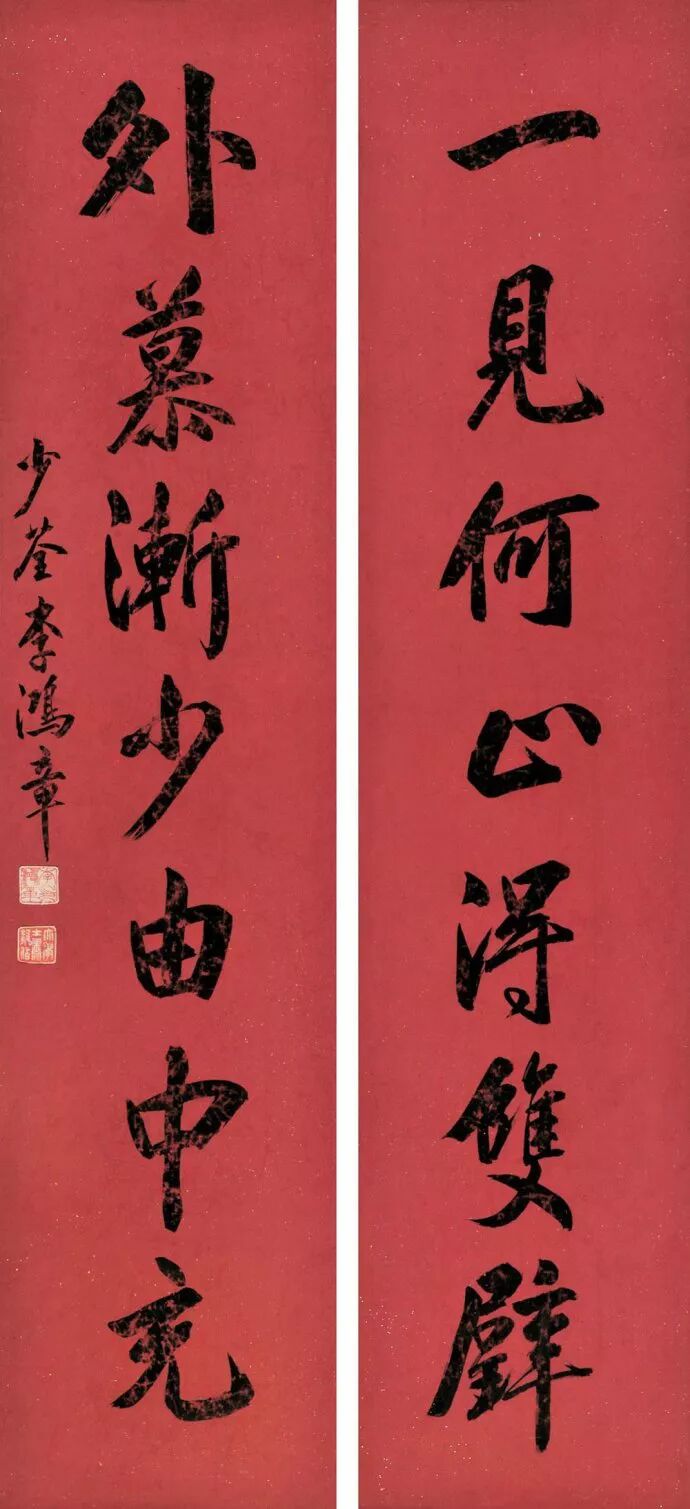 一見何止得雙璧
外慕漸少由中充
少荃李鴻章